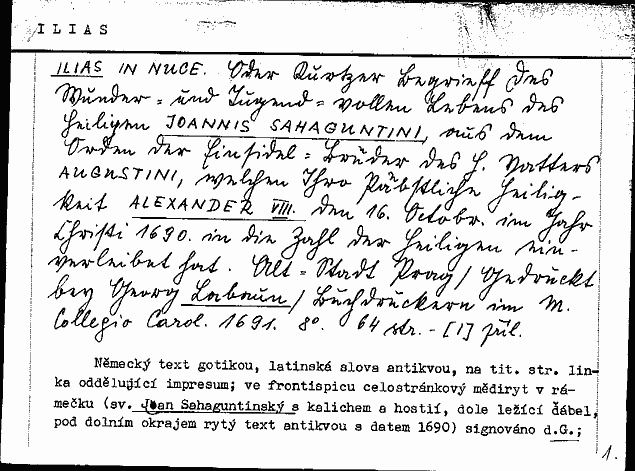 ILIAS
ILIAS IN NUCE. Oder Kurtzer Begrieff des
Wunder- und Tugend-vollen Lebens des
Heiligen JOANNIS SAHAGUNTINI, aus dem
Orden der Einsidel-Brüder des H. Vatters
AUGUSTINI, welchen Ihro Päbstliche Heilig-
keit ALEXANDER VIII. den 16. Octobr. im Jahr
Christi 1690. in die Zahl der Heiligen ein-
verleibet hat. Alt-Stadt Prag/ Gedruckt
bey Georg Labaun/ Buchdruckern im M.
Collegio Carol. 1691. 8o. 64 str. - [1] příl.
Německý text gotikou, latinská slova antikvou, na tit. str. lin-
ka oddělující impresum; ve frontispicu celostránkový mědiryt v rá-
mečku (sv. Joan Sahaguntinský s kalichem a hostií, dole ležící ďábel,
pod dolním okrajem rytý text antikvou s datem 1690) signováno d.G.;
1.